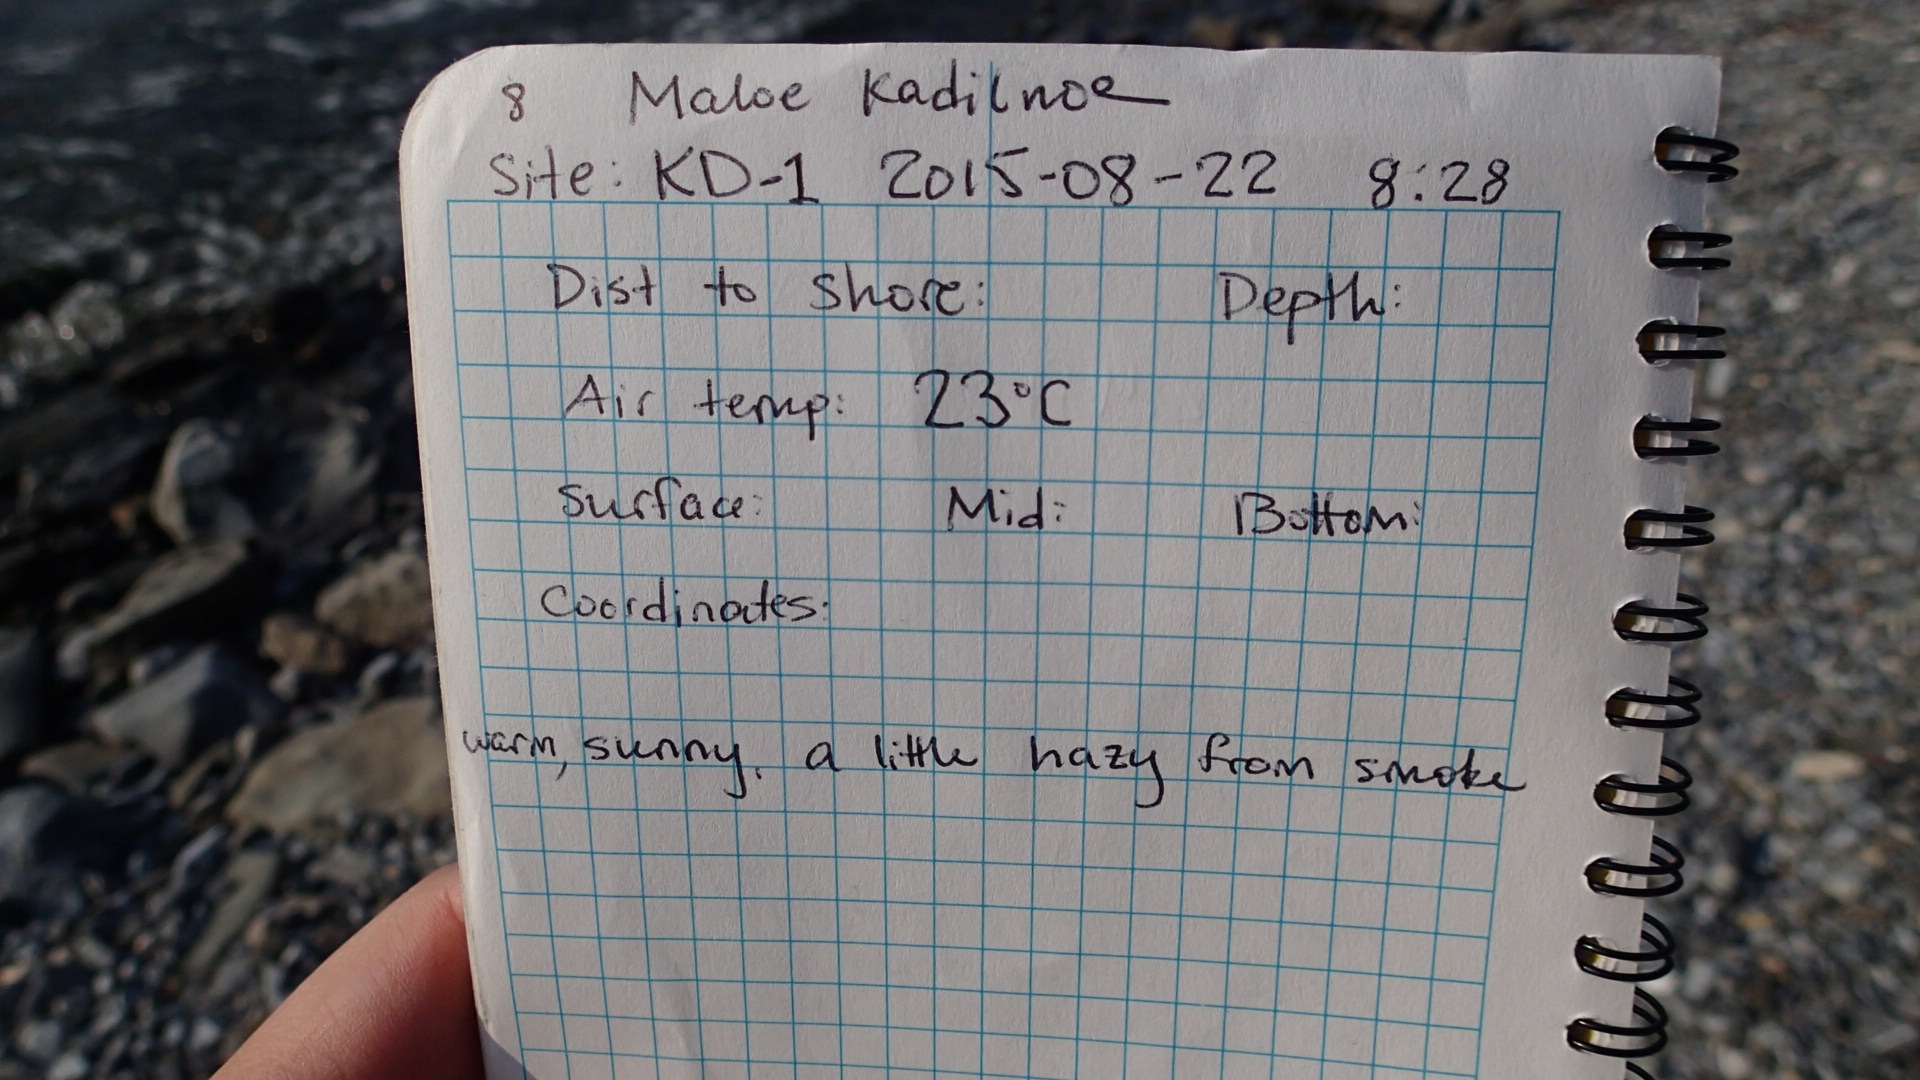 8 Maloe Kadilnoe
Site: KD-1 2015-08-22 8:28
Dist to shore: Depth:
Air temp: 23°C
Surface: Mid: Bottom:
Coordinates:
warm, sunny, a little hazy from smoke